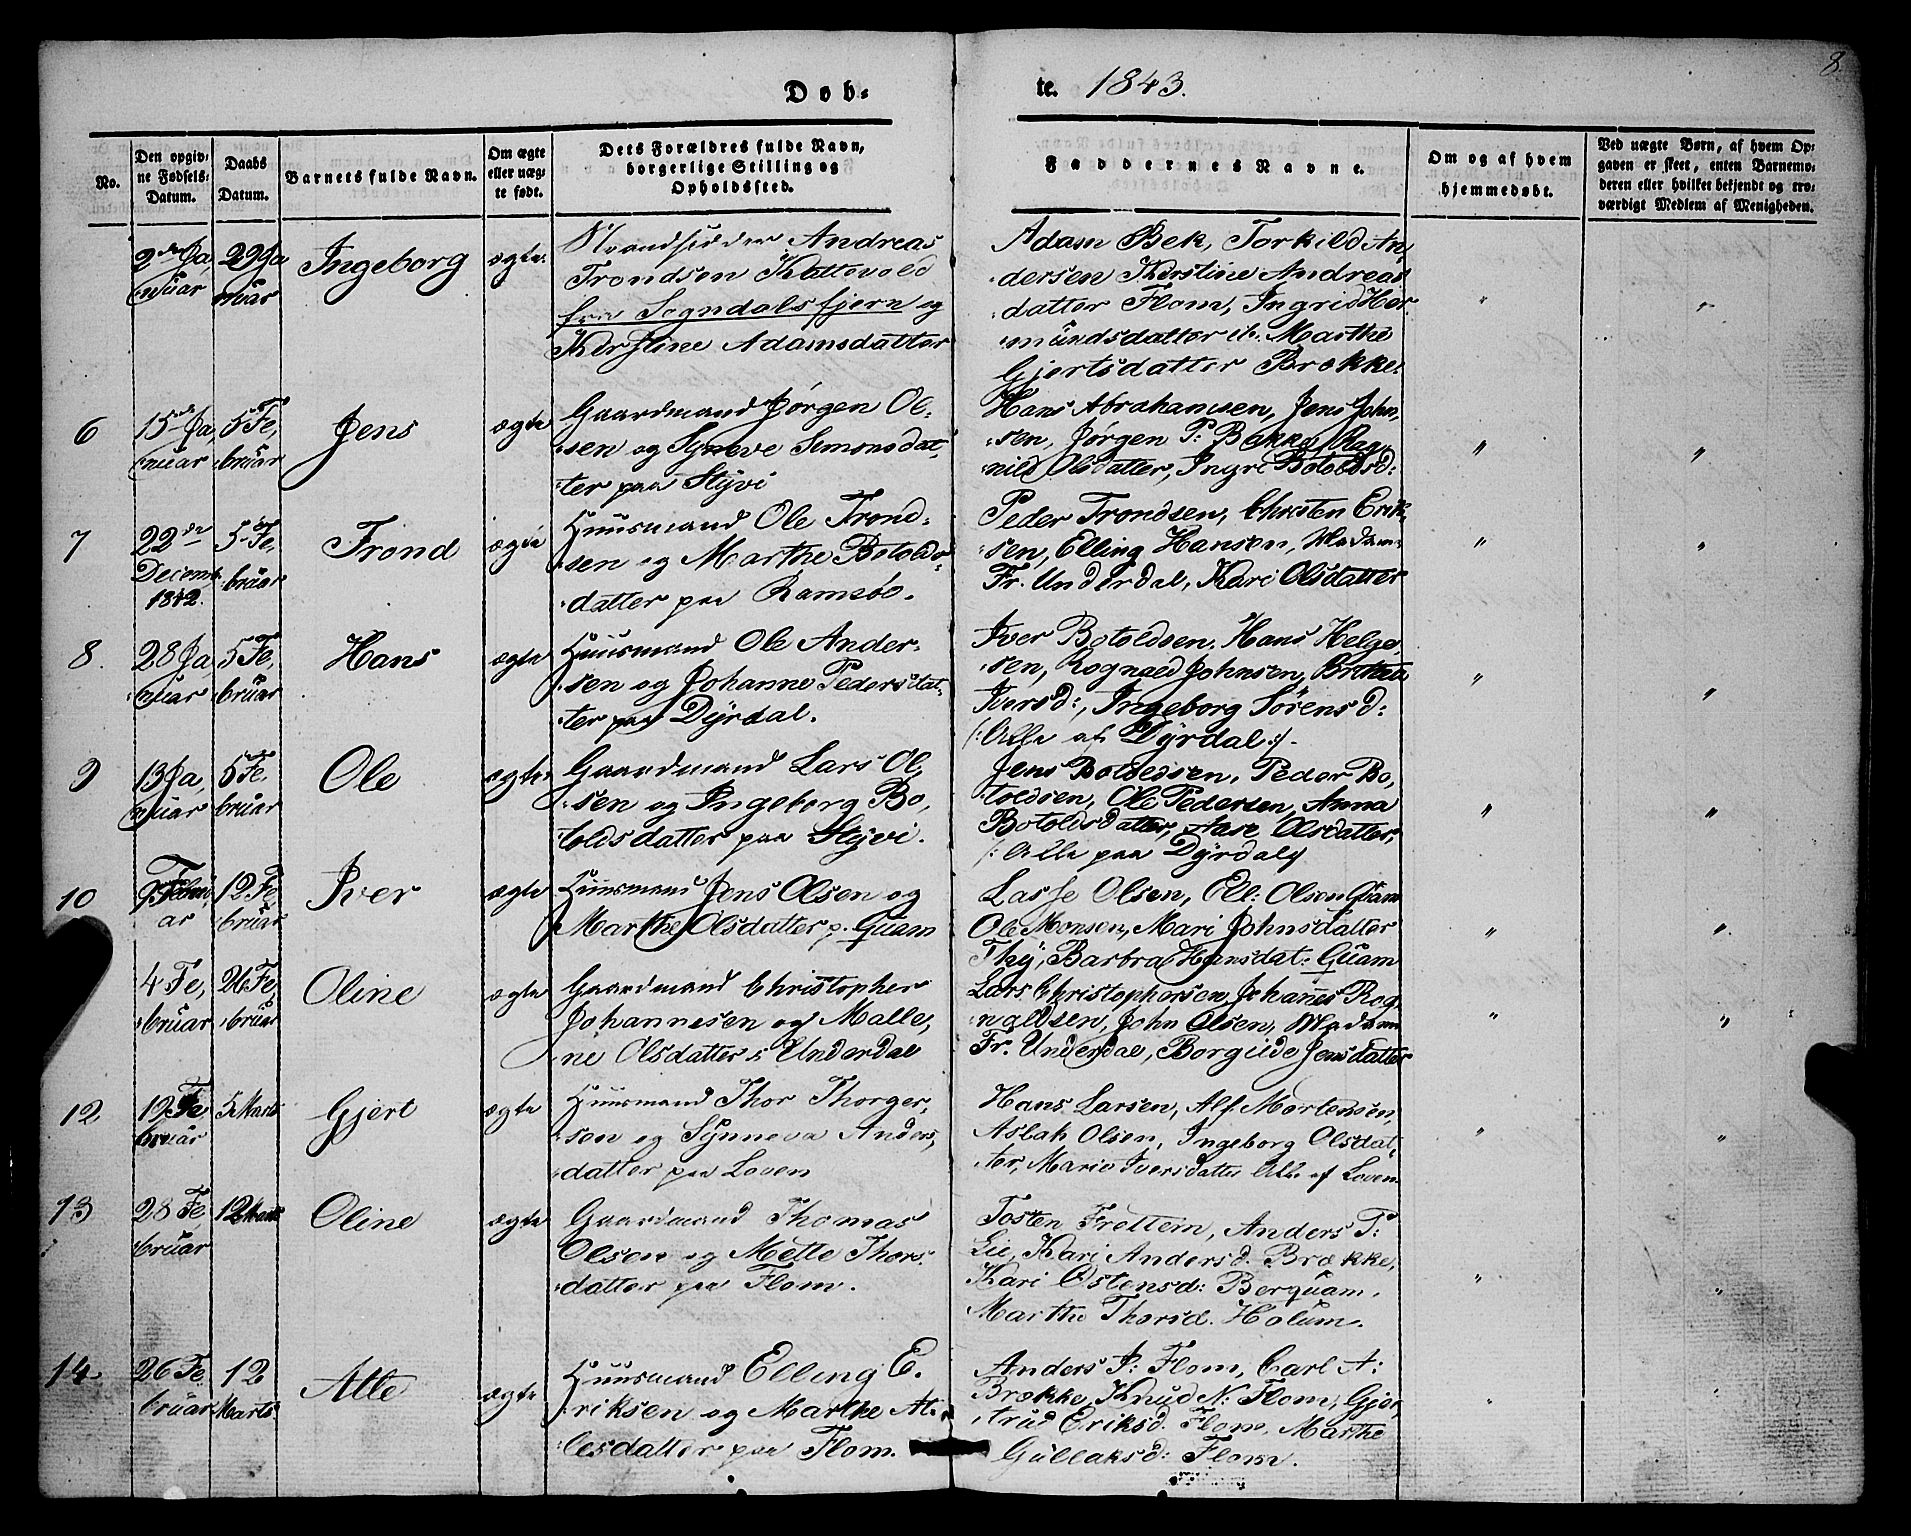 8.
Døb-
te. 1843.
No.
Den opgiv-
ne Fødsels-
Datum.
Daabs
Datum.
Barnets fulde Navn.
Om ægte
eller uæg-
te født.
Dets Forældres fulde Navn,
borgerlige Stilling og
Opholdssted.
Faddernes Navne.
Om og af hvem
hjemmedøbt.
Ved uægte Børn, af hvem Op-
gaven er skeet, enten Barnemo-
deren eller hvilket bekjendt og tro-
værdigt Medlem af Menigheden.
2den Ja,
nuar
29 Ja
nuar
Ingeborg
ægte
Strandsidder Andreas
Trondsen Kattevold
fra Sogndalsfjern og
Kerstine Adamsdatter
Adam Bek, Torkild An,
dersen Kerstine Andreas
datter Flom, Ingrid Her,
mundsdatter ib. Marthe
Gjertsdatter Brekke
"
"
6
15de Ja,
nuar
5 Fe,
bruar
Jens
ægte
Gaardmand Jørgen Ol-
sen og Syneve Simonsdat-
ter paa Styvi
Hans Abrahamsen, Jens John,
sen, Jørgen P: Bakke, Rag,
nild Olsdatter, Ingri Botolds d:
"
"
7
22de
Decemb.
1842.
5 Fe,
bruar
Trond
ægte
Huusmand Ole Trond-
sen og Marthe Botolds-
datter paa Ramsøe.
Peder Trondsen, Christen Erik,
sen, Elling Hansen, Madam
Fr. Underdal, Kari Olsdatter
"
"
8.
28 Ja,
nuar
5 Fe,
bruar
Hans
ægte
Huusmand Ole Ander-
sen og Johanne Pedersdat-
ter paa Dyrdal.
Iver Botoldsen, Hans Helge,
sen, Rognald Johnsen, Brithe
Iversd:, Ingeborg Sørens d:
/: Alle af Dyrdal :/.
"
"
9
13 Ja,
nuar
5 Fe,
bruar
Ole
ægte
Gaardmand Lars Ol,
sen og Ingeborg Bo,
toldsdatter paa Styvi.
Jens Botoldsen, Peder Bo,
toldsen, Ole Pedersen, Anna
Botoldsdatter, Aase Olsdatter,
/: Alle paa Dyrdal :/
"
"
10
9 Febru
ar
12 Fe,
bruar
Iver
ægte
Huusmand Jens Olsen og
Marthe Olsdatter p. Quam
Lasse Olsen, Ell: Olsen Quam
Ole Monsen, Mari Johnsdatter
Thy, Barbra Hansdat: Quam
"
"
4 Fe,
bruar
26 Fe,
bruar
Oline
ægte
Gaardmand Christopher
Johannesen og Malle,
ne Olsdatter Underdal
Lars Christophersen, Johanes Rog,
naldsen, John Olsen, Madam
Fr. Underdal, Borgilde Jensdatter
"
"
12
12 Fe
bruar
5 Marts
Gjert
ægte
Huusmand Thor Thorger,
sen og Synneva Anders,
datter paa Loven
Hans Larsen, Alf. Mortensen,
Aslak Olsen, Ingeborg Olsdat-
ter, Marie Iversdatter Alle af Loven
"
"
13
28 Fe,
bruar
12 Marts
Oline
ægte
Gaardmand Thomas
Olsen og Mette Thors,
datter paa Flom.
Tosten Frettem, Anders T:
Lie, Kari Andersd. Brække,
Kari Ostensd: Berquam,
Marthe Thorsd. Holum.
"
"
14
26 Fe,
bruar
12
Marts
Atle
ægte
Huusmand Elling E.
riksen og Marthe At,
lesdatter paa Flom.
Anders P: Flom, Carl A:
Brække, Knud N: Flom, Gjer,
trud Eriksd. Flom, Marthe
Gullaksd: Flom.
"
"